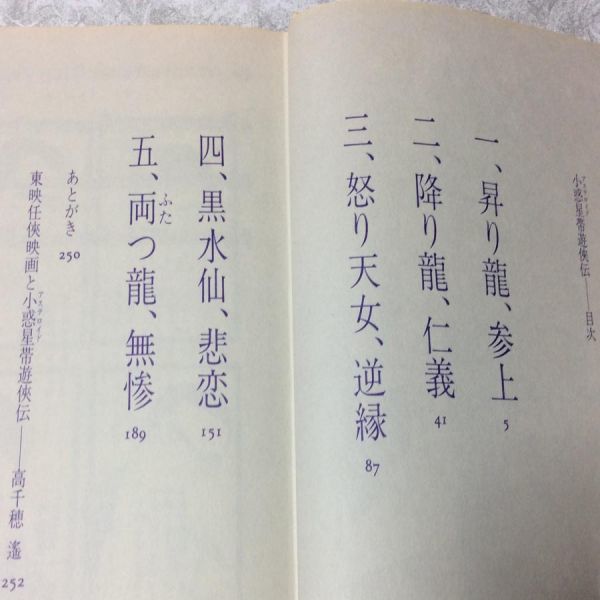 小惑星帯遊俠伝——目次
アステロイド
一、昇り龍、参上
5
二、降り龍、仁義
41
三、怒り天女、逆縁
87
四、黒水仙、悲恋
151
五、両つ龍、無惨
ふた
189
あとがき
250
東映任俠映画と小惑星帯遊俠伝——高千穂 遙
アステロイド
252